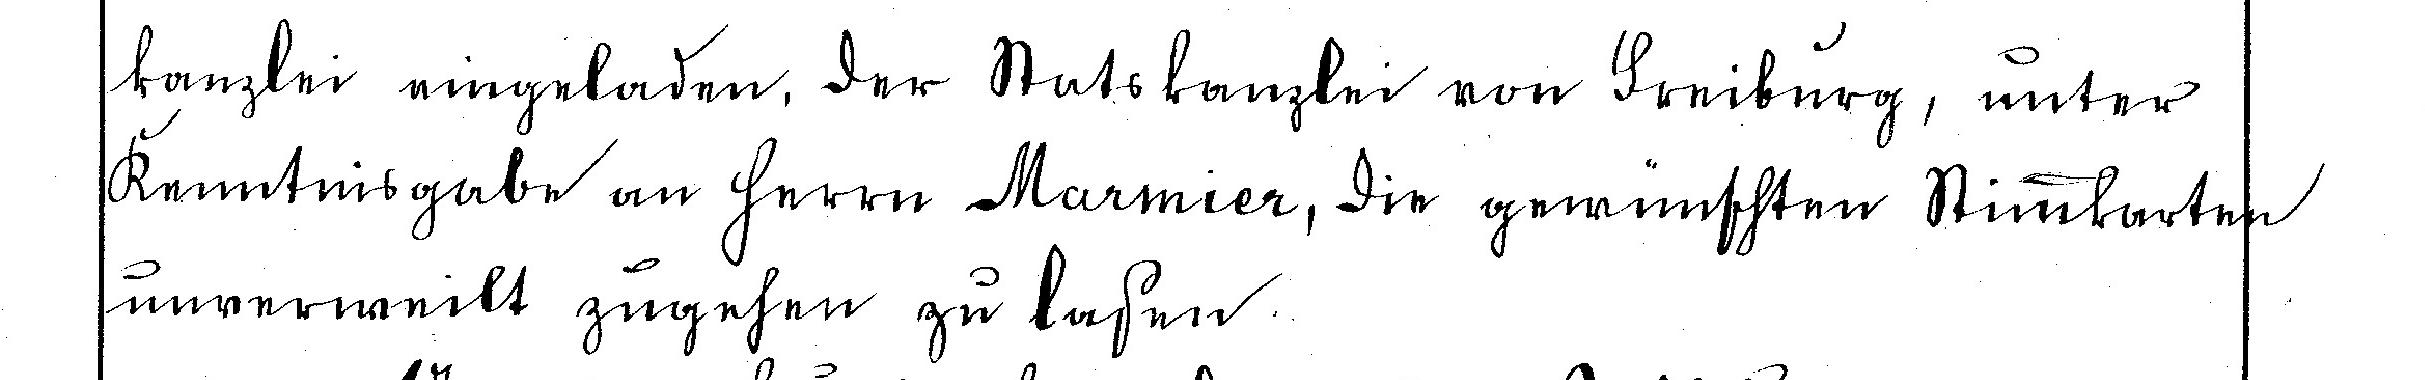 kanzlei eingeladen, der Statskanzlei von Freiburg, unter
Kenntnisgabe an Herrn Marmier, die gewünschten Stim̅karten
unverweilt zugehen zu laßen.